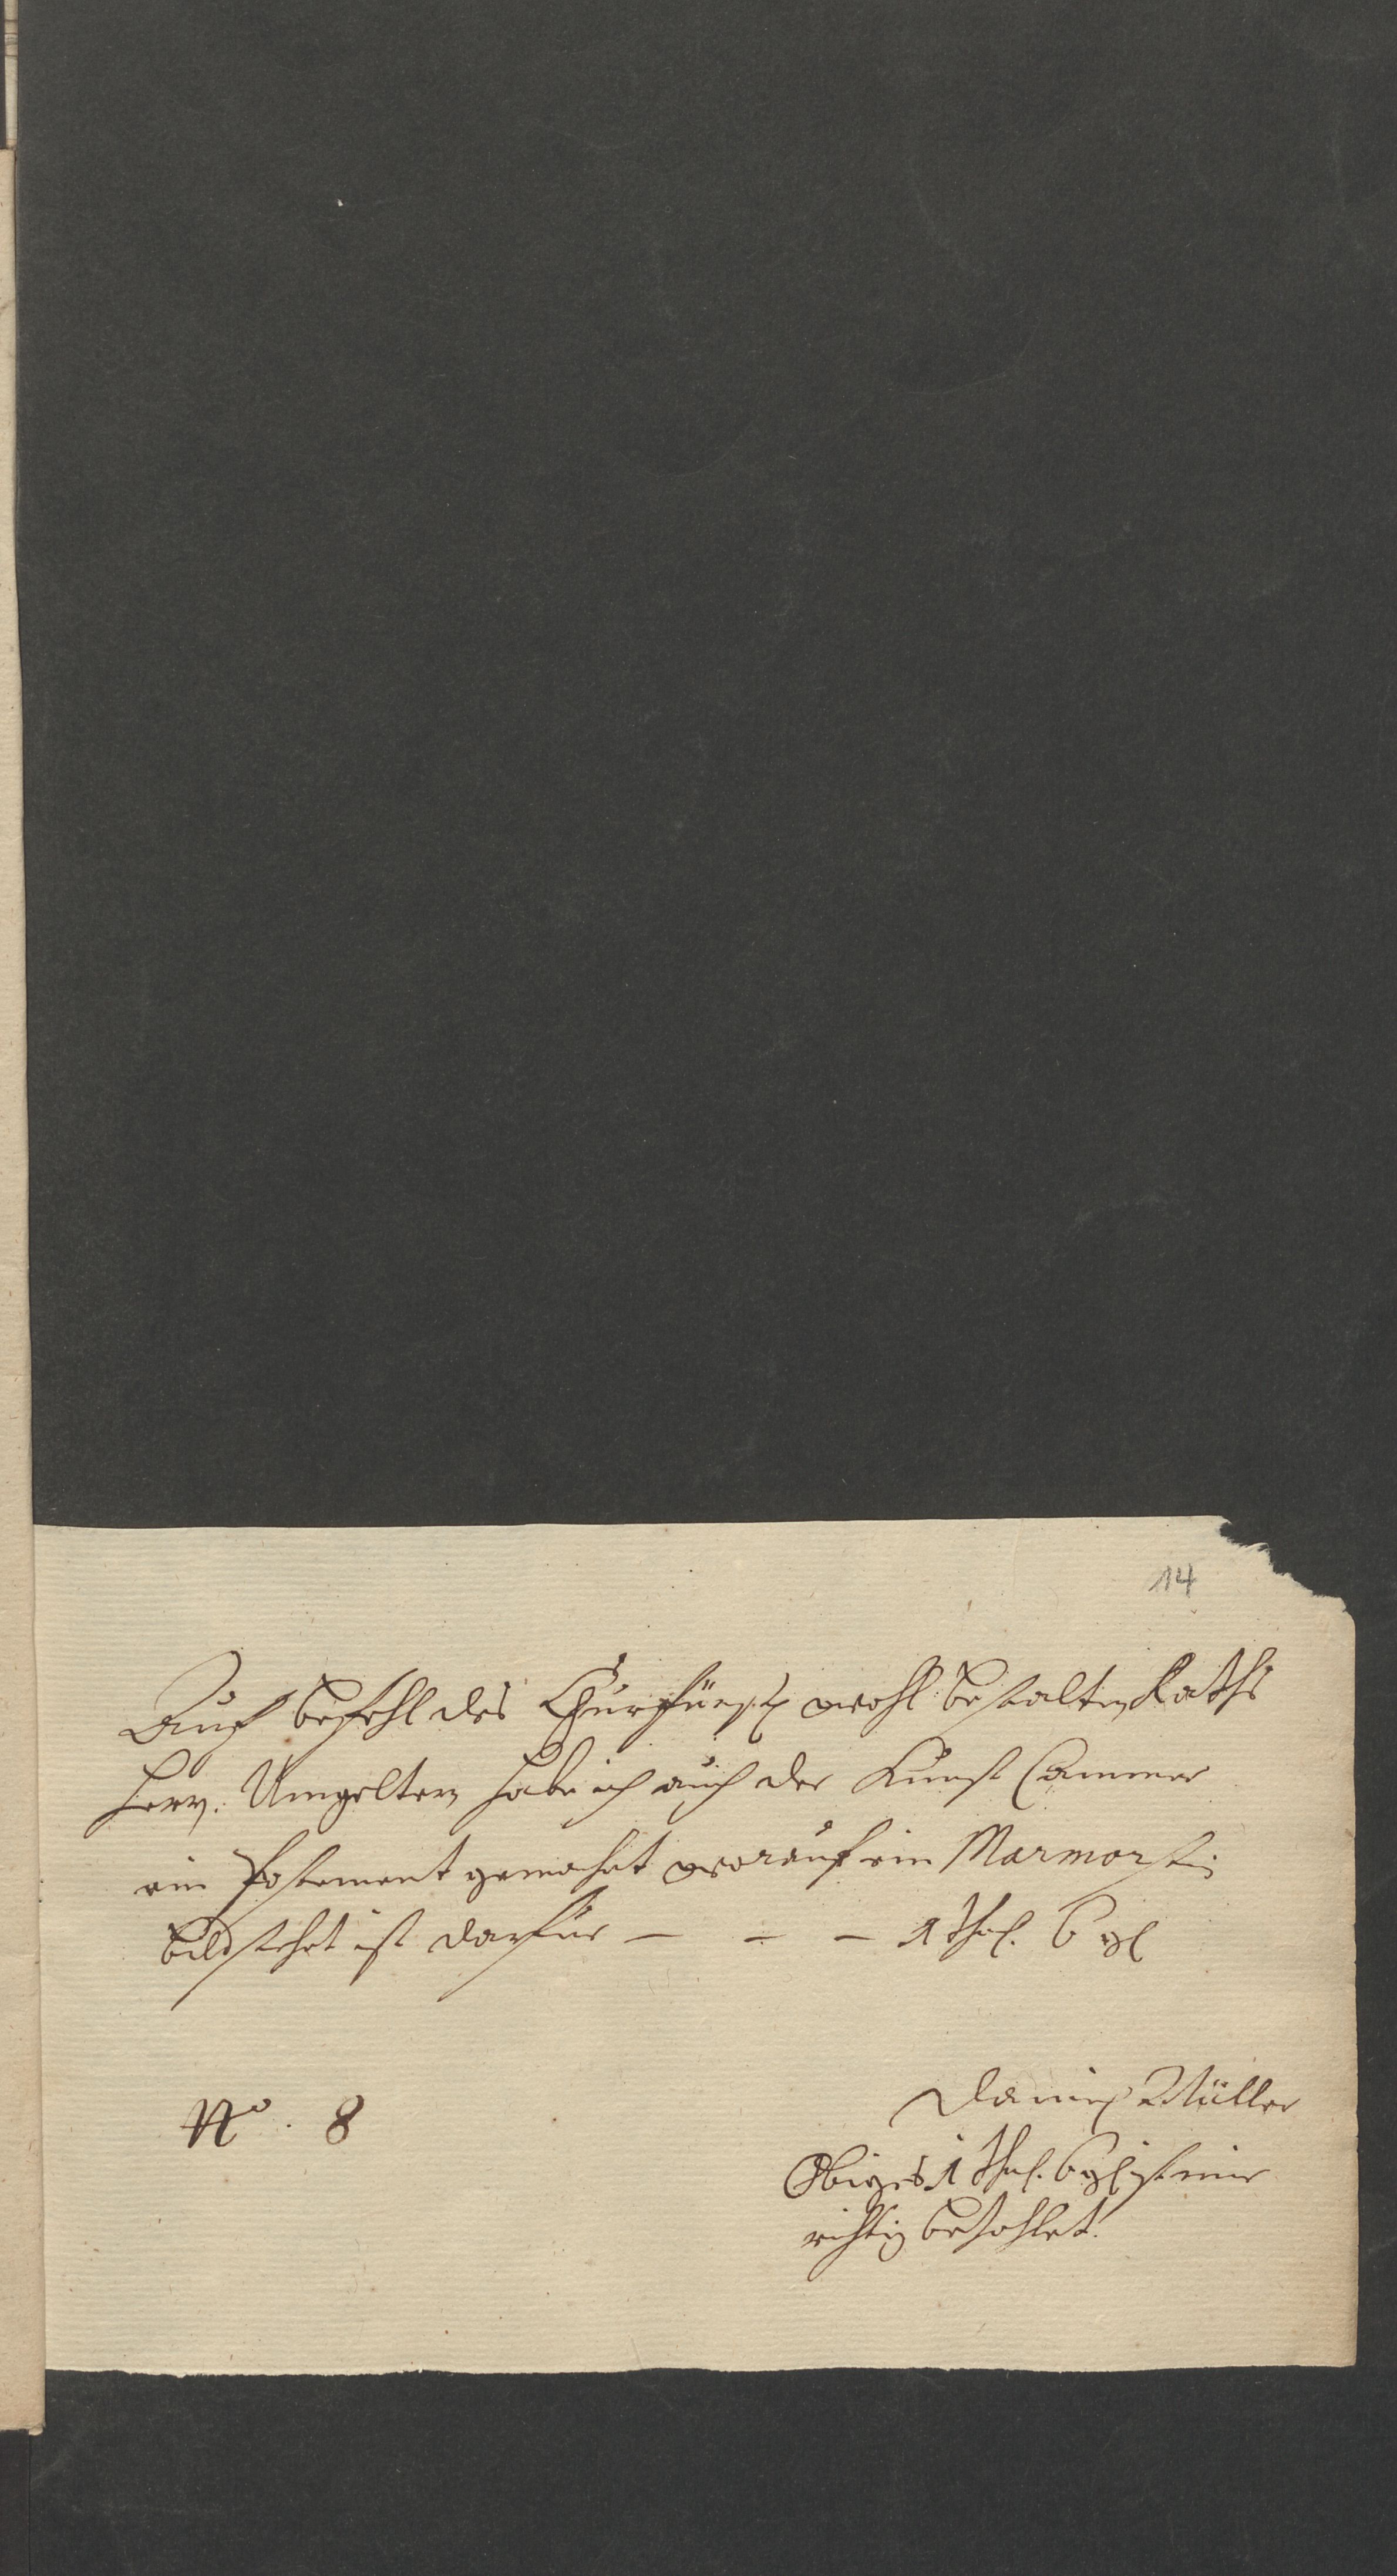 14
Auf befehl des Churfürstl wohl bestalten Raths
Herr. Ungelter habe ich auf der Kunst Cammer
ein Postement gemacht worauf ein Marmorst:
bild stehet ist darfür — — — 1 Thal. 6 gl
No. 8
Daniel Müller
Obiges 1 Thal. 6 gl ist mir
richtig bezahlet.